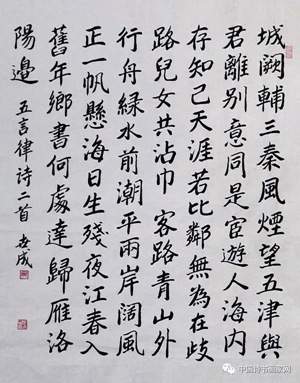 城闕輔三秦風煙望五津與
君離別意同是宦遊人海内
存知己天涯若比鄰無為在歧
路兒女共沾巾 客路青山外
行舟綠水前潮平兩岸闊風
正一帆懸海日生殘夜江春入
舊年鄉書何處達歸雁洛
陽邊 五言律诗二首 成
中国诗书画家网